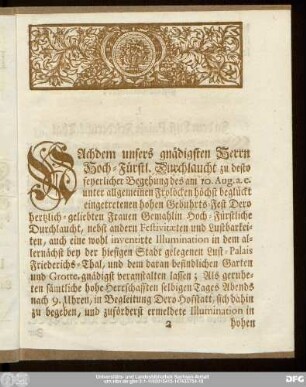 NAchdem unsers gnädigsten Herrn
Hoch-Fürstl. Durchlaucht zu desto
feyerlicher Begehung des am 10. Aug. a. c.
unter allgemeinen Frolocken höchst beglückt
eingetretenen hohen Gebuhrts-Fest Dero
hertzlich-geliebten Frauen Gemahlin Hoch-Fürstliche
Durchlaucht, nebst andern Festivitæten und Lustbarkei-
ten, auch eine wohl inventirte Illumination in dem al-
lernächst bey der hiesigen Stadt gelegenen Lust-Palais
Friederichs-Thal, und dem daran befindlichen Garten
und Grotte, gnädigst veranstalten lassen; Als geruhe-
ten sämtliche hohe Herrschafften selbigen Tages Abends
nach 9. Uhren, in Begleitung Dero Hofstatt, sich dahin
zu begeben, und zuförderst ermeldete Illumination in
a hohen